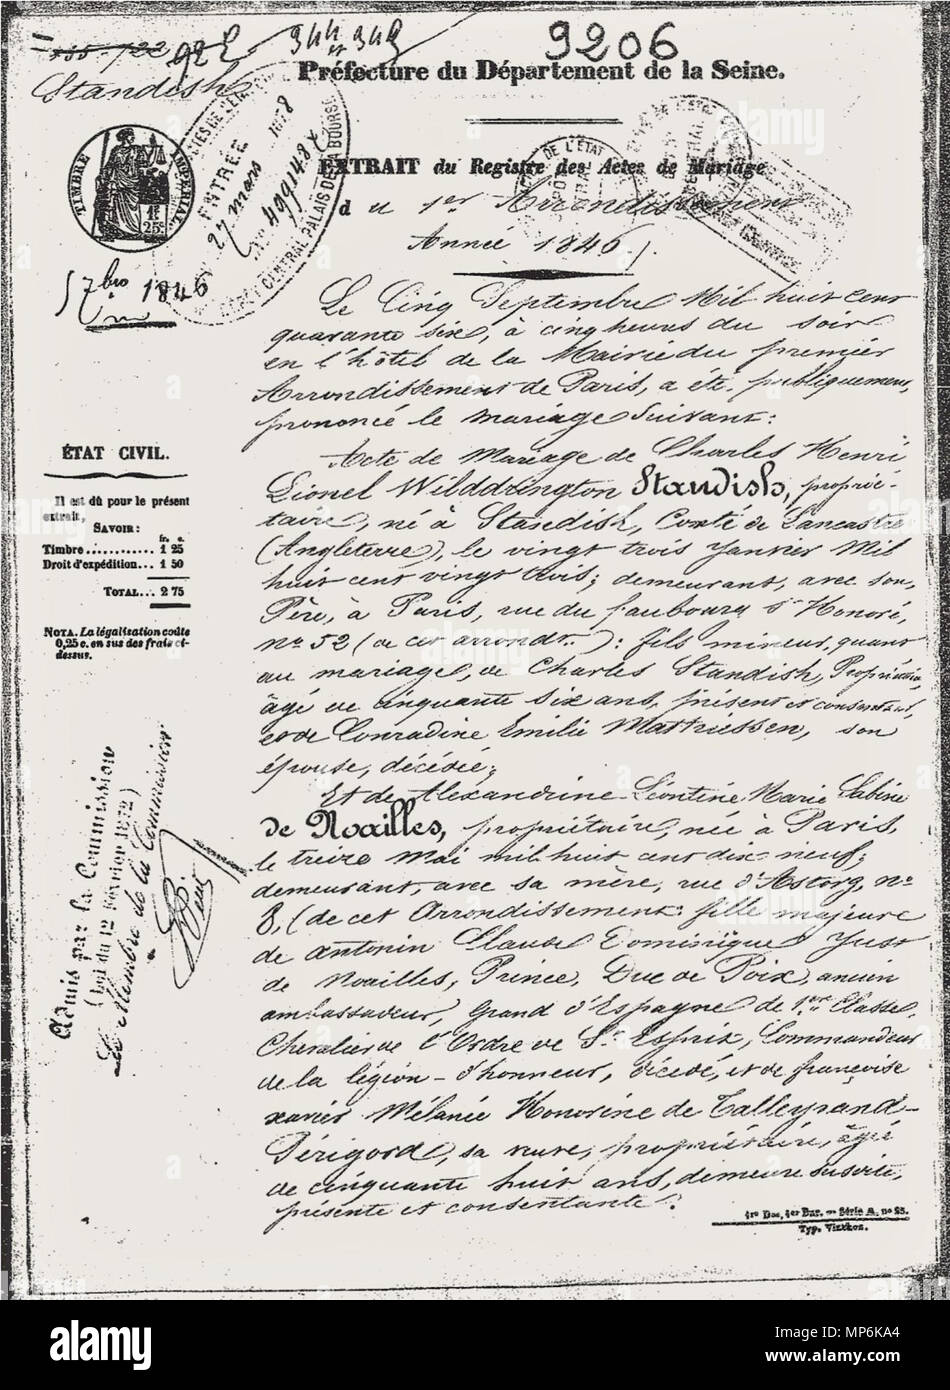 9206
344 et 349
Standish
Préfecture du Département de la Seine.
TIMBRE IMPERIAL
1F 25c
ENTRÉE
27 mars 1878
EXTRAIT du Registre des Actes de Mariage
du 1er Arrondissement
Année 1846
5 7bre 1846
Le Cinq Septembre Mil huit cent
quarante six, à cinq heures du soir
en l'hôtel de la Mairie du premier
Arrondissement de Paris, a été publiquement
prononcé le mariage suivant:
Acte de Mariage de Charles Henri
Lionel Wilddrington Standish, proprié-
taire, né à Standish, Comté de Lancastre
(Angleterre), le vingt trois Janvier Mil
huit cent vingt trois; demeurant, avec son
Père, à Paris, rue du faubourg St Honoré,
no 52 (de cet arrondt.): fils mineur, quant
au mariage, de Charles Standish, Propriétaire,
âgé de cinquante six ans, présent et consentant,
et de Conradine Emilie Matthiessen, son
épouse, décédée;
Et de Alexandrine Léontine Marie Sabine
de Noailles, propriétaire, née à Paris,
le treize Mai mil huit cent dix neuf;
demeurant, avec sa mère, rue d'Astorg, no
8, (de cet Arrondissement: fille majeure
de Antonin Claude Dominique Just
de Noailles, Prince, Duc de Poix, ancien
ambassadeur, Grand d'Espagne de 1ere Classe,
Chevalier de l'Ordre de St Esprit, Commandeur
de la légion-d'honneur, décédé, et de françoise
xavier Mélanie Honorine de Talleyrand-
Périgord, sa veuve, propriétaire, âgée
de cinquante huit ans, demeure susdite,
présente et consentante.
ÉTAT CIVIL.
Il est dû pour le présent
extrait,
SAVOIR:
fr. c.
Timbre........... 1 25
Droit d'expédition... 1 50
TOTAL... 2 75
NOTA. La légalisation coûte
0,25 c. en sus des frais ci-
dessus.
Admis par la Commission
(Loi du 12 Février 1872)
Le Membre de la Commission
Typ. Vinchon.
alamy
Image ID: MP6KA4
www.alamy.com